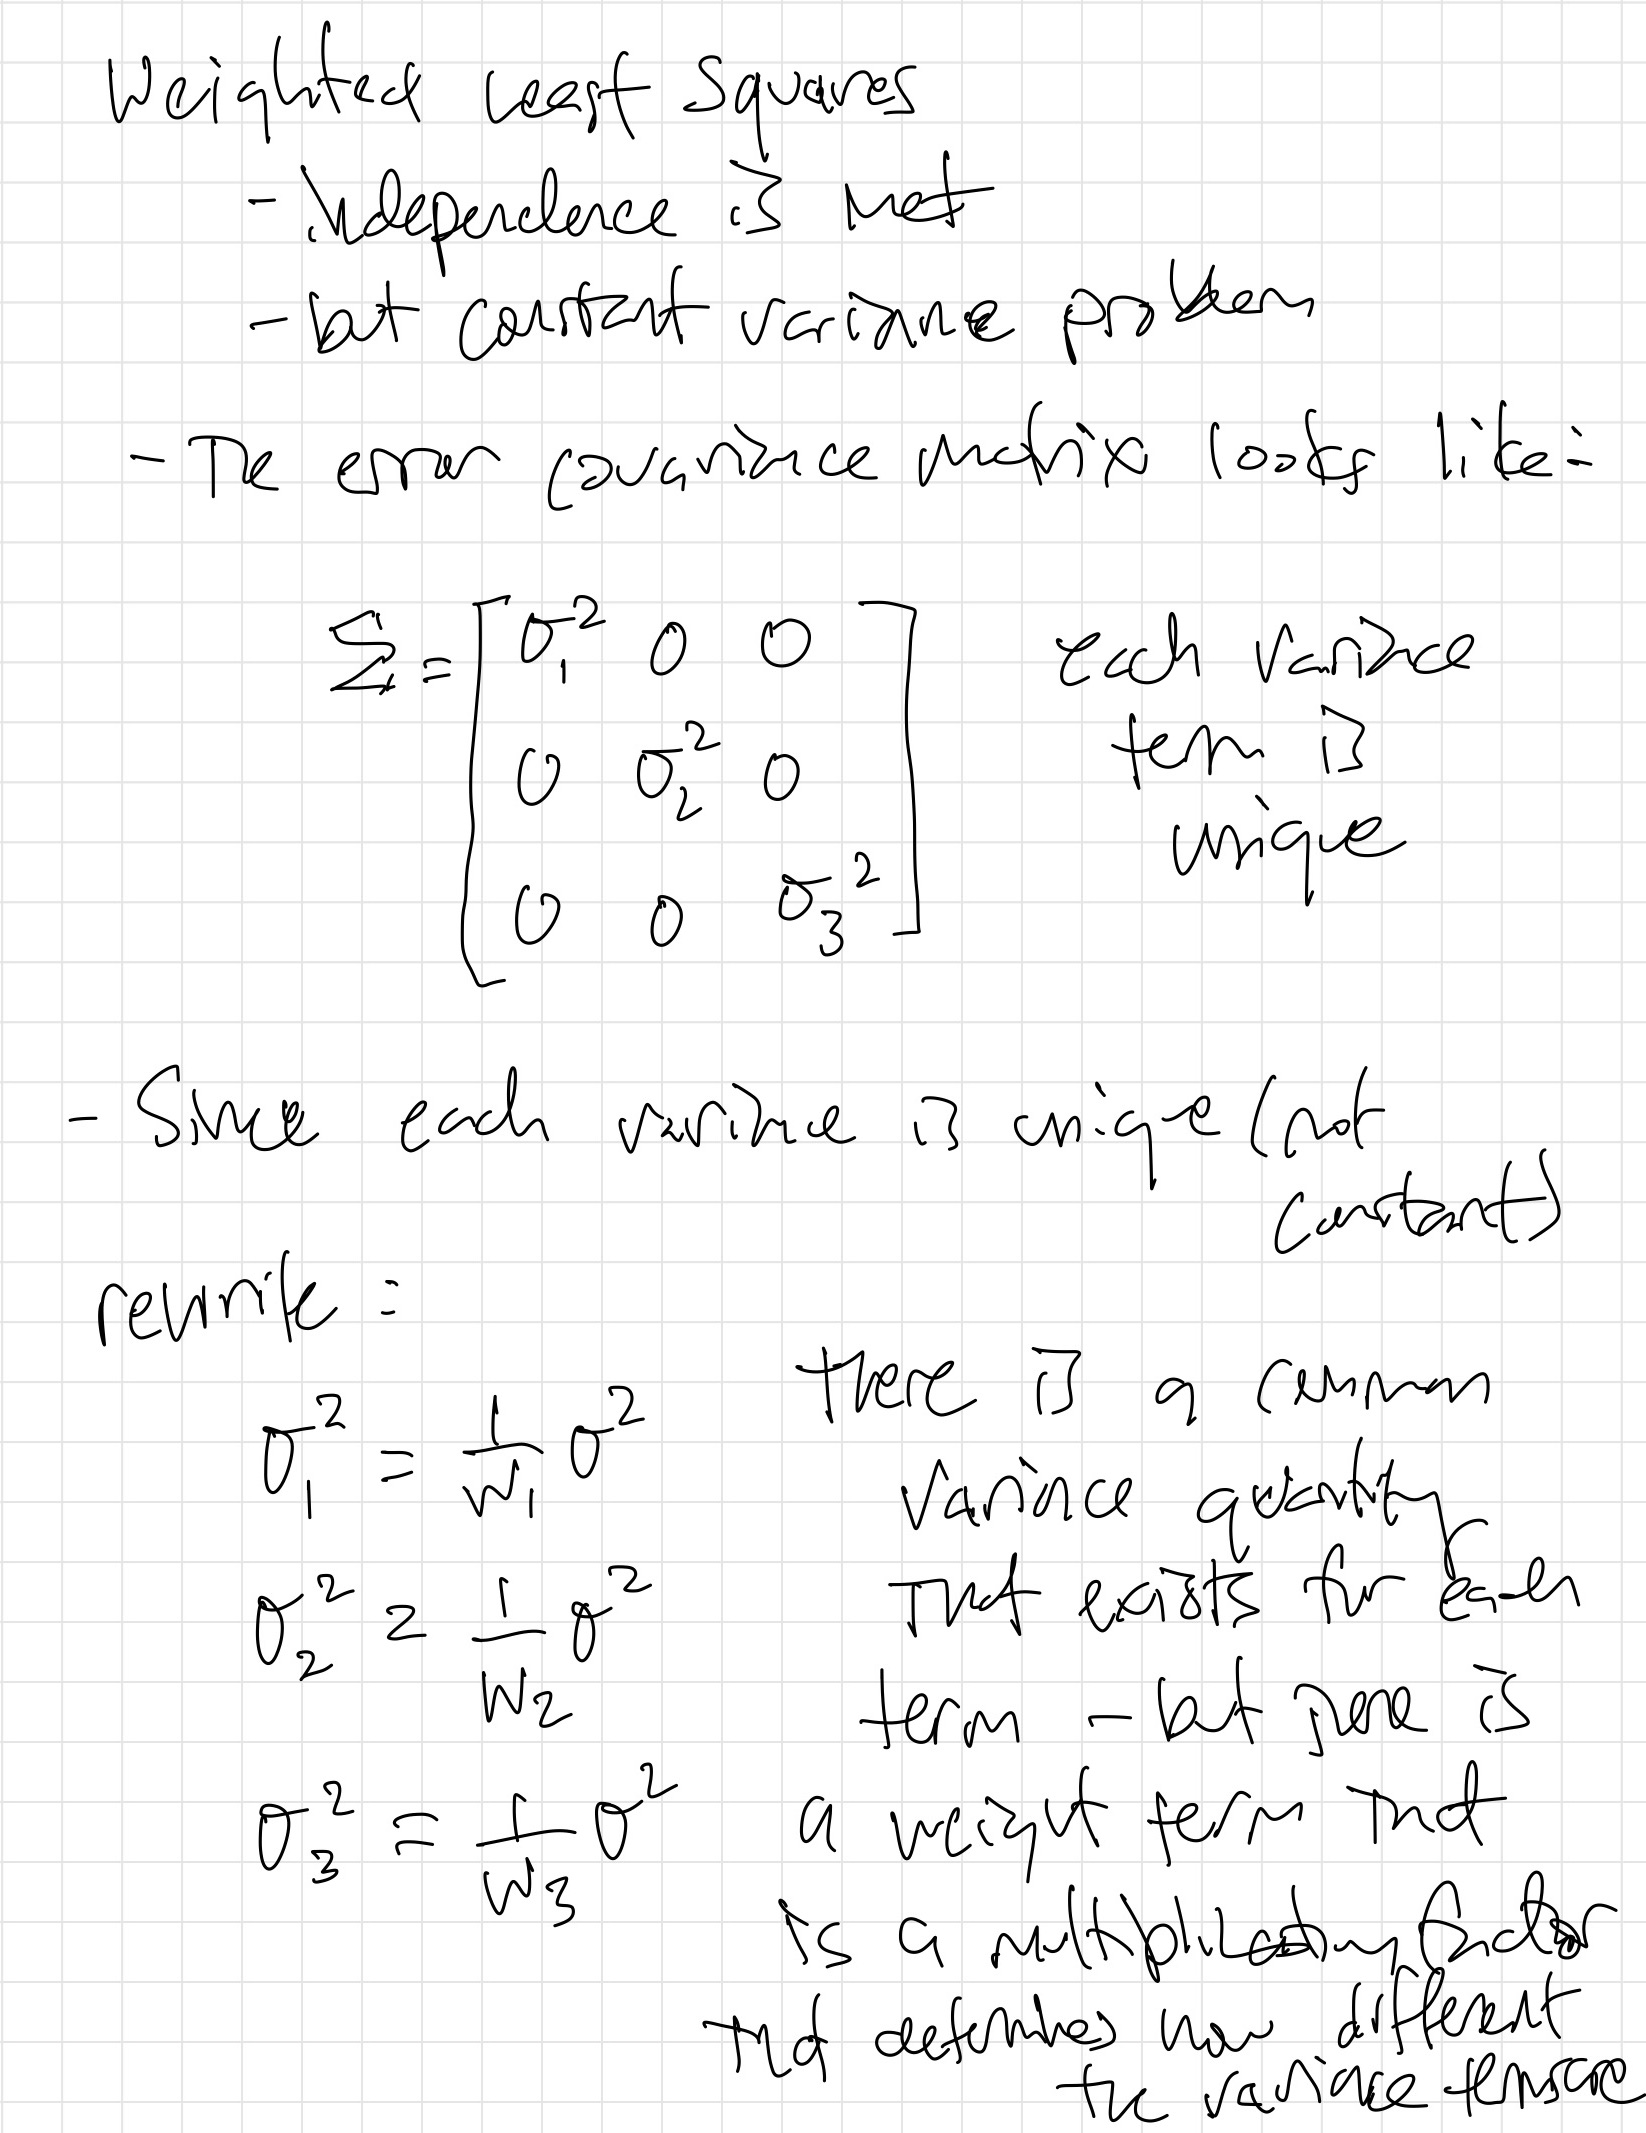 Weighted least squares
- independence is met
- but constant variance problem
- The error covariance matrix looks like:
Σ = [ σ₁² 0 0
0 σ₂² 0
0 0 σ₃² ]
each variance
term is
unique
- Since each variance is unique (not
constant)
rewrite:
σ₁² = 1/w₁ σ²
σ₂² = 1/w₂ σ²
σ₃² = 1/w₃ σ²
there is a common
variance quantity
that exists for each
term - but there is
a weight term that
is a multiplication factor
that determines how different
the variance terms are